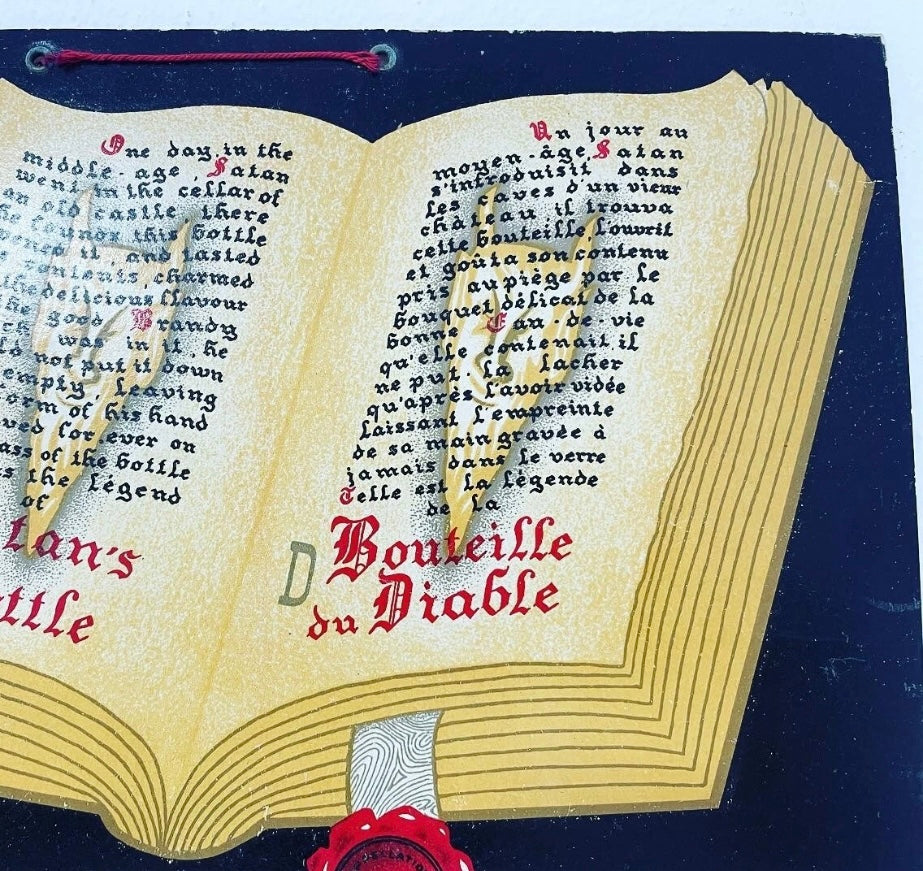 One day, in the
middle - age Satan
went in the cellar of
an old castle, there
he founox this bottle
it, and tasted
contents, charmed
the delicious flavour
the good Brandy
was in it, he
not put it down
empty, leaving
of his hand
for ever on
of the bottle
the légend
of
tan's
ttle
Un jour au
moyen-âge, Satan
s'introduisit dans
les caves d'un vieux
château il trouva
cette bouteille, l'ouvrit
et goûta son contenu
pris au piège par le
bouquet délicat de la
bonne Eau-de-vie
qu'elle contenait, il
ne put la lacher
qu'après l'avoir vidée
laissant l'empreinte
de sa main gravée à
jamais dans le verre
Telle est la légende
de la
D Bouteille
du Diable